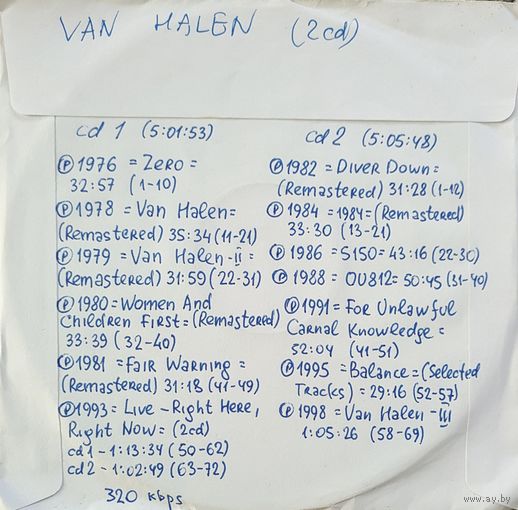 VAN HALEN (2cd)
cd 1 (5:01:53)
Ⓟ 1976 = Zero =
32:57 (1-10)
Ⓟ 1978 = Van Halen =
(Remastered) 35:34 (11-21)
Ⓟ 1979 = Van Halen - II =
(Remastered) 31:59 (22-31)
Ⓟ 1980 = Women And
Children First = (Remastered)
33:39 (32-40)
Ⓟ 1981 = Fair Warning =
(Remastered) 31:18 (41-49)
Ⓟ 1993 = Live - Right Here,
Right Now = (2cd)
cd1 - 1:13:34 (50-62)
cd2 - 1:02:49 (63-72)
320 kbps
cd 2 (5:05:48)
Ⓟ 1982 = Diver Down =
(Remastered) 31:28 (1-12)
Ⓟ 1984 = 1984 = (Remastered)
33:30 (13-21)
Ⓟ 1986 = 5150 = 43:16 (22-30)
Ⓟ 1988 = OU812 = 50:45 (31-40)
Ⓟ 1991 = For Unlawful
Carnal Knowledge =
52:04 (41-51)
Ⓟ 1995 = Balance = (Selected
Tracks) = 29:16 (52-57)
Ⓟ 1998 = Van Halen - III
1:05:26 (58-69)
www.ay.by